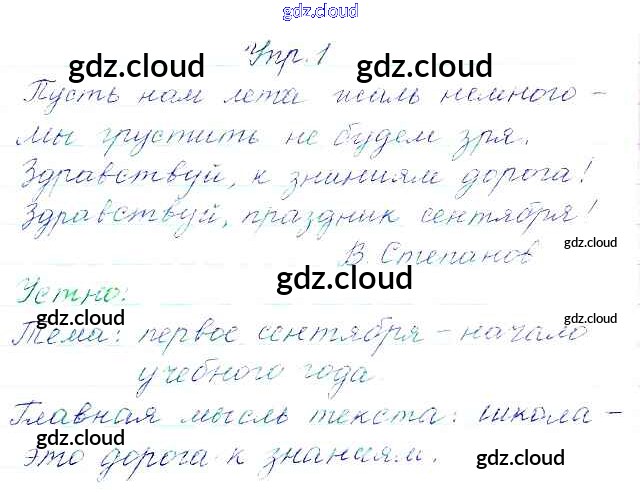 gdz.cloud
Упр. 1
gdz.cloud gdz.cloud
Пусть нам лета жаль немного –
Мы грустить не будем зря.
Здравствуй, к зниниям дорога!
Здравствуй, праздник сентября!
В. Степанов
gdz.cloud
gdz.cloud
Устно:
gdz.cloud gdz.cloud
Тема: первое сентября – начало
учебного года.
Главная мысль текста: школа –
gdz.cloud
это дорога к знаниям.
gdz.cloud